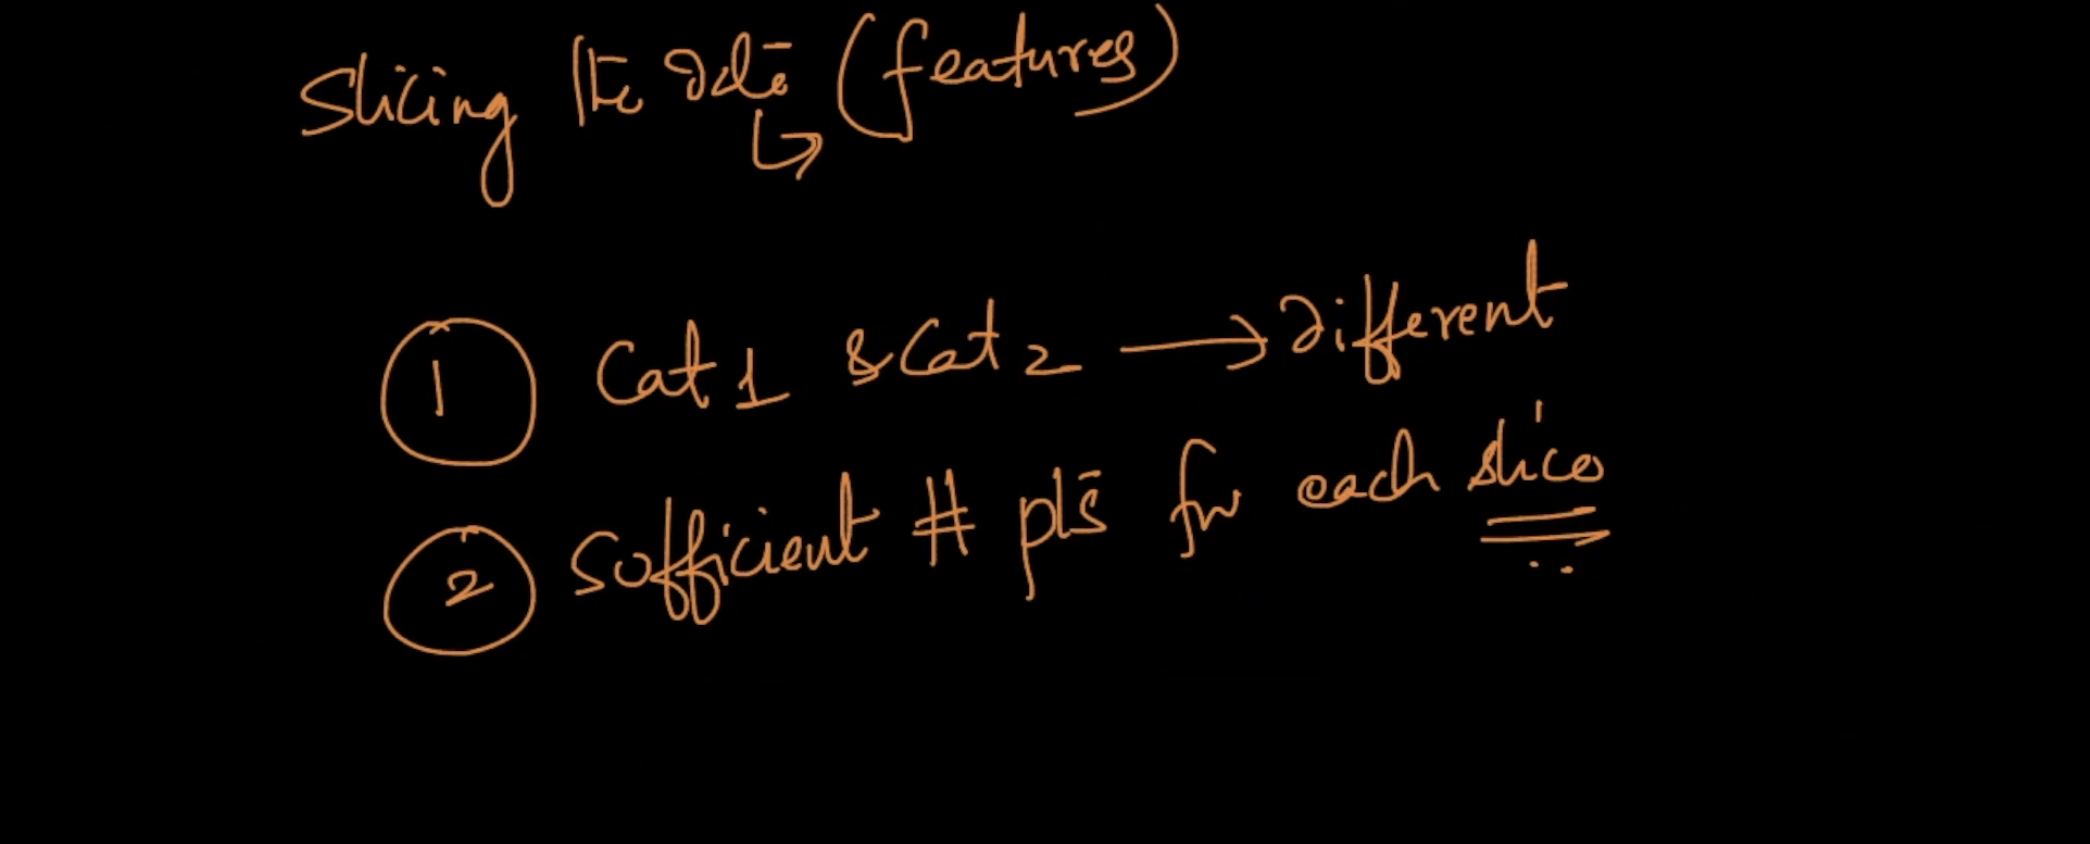 Slicing the data (features)
1 Cat 1 & Cat 2 → different
2 Sufficient # pts for each slice